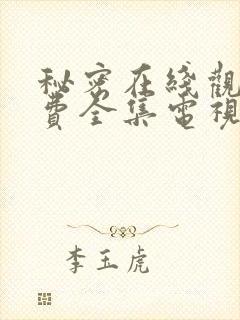 秘密在綫觀
費全集電視
李玉虎